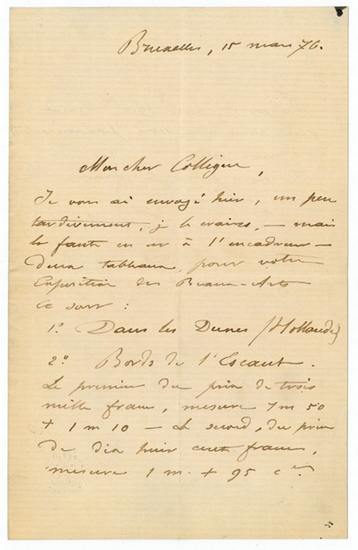 Bruxelles, 15 mars 76.
Mon cher Collègue,
Je vous ai envoyé hier, un peu
tardivement, je le crains, – mais
la faute en est à l'encadreur –
deux tableaux pour votre
Exposition des Beaux-Arts
Ce sont :
1º Dans les Dunes (Hollande)
2º Bords de l'Escaut.
Le premier du prix de trois
mille francs, mesure 1 m 50
+ 1 m 10 – Le second, du prix
de dix huit cent francs,
mesure 1 m. + 95 c.